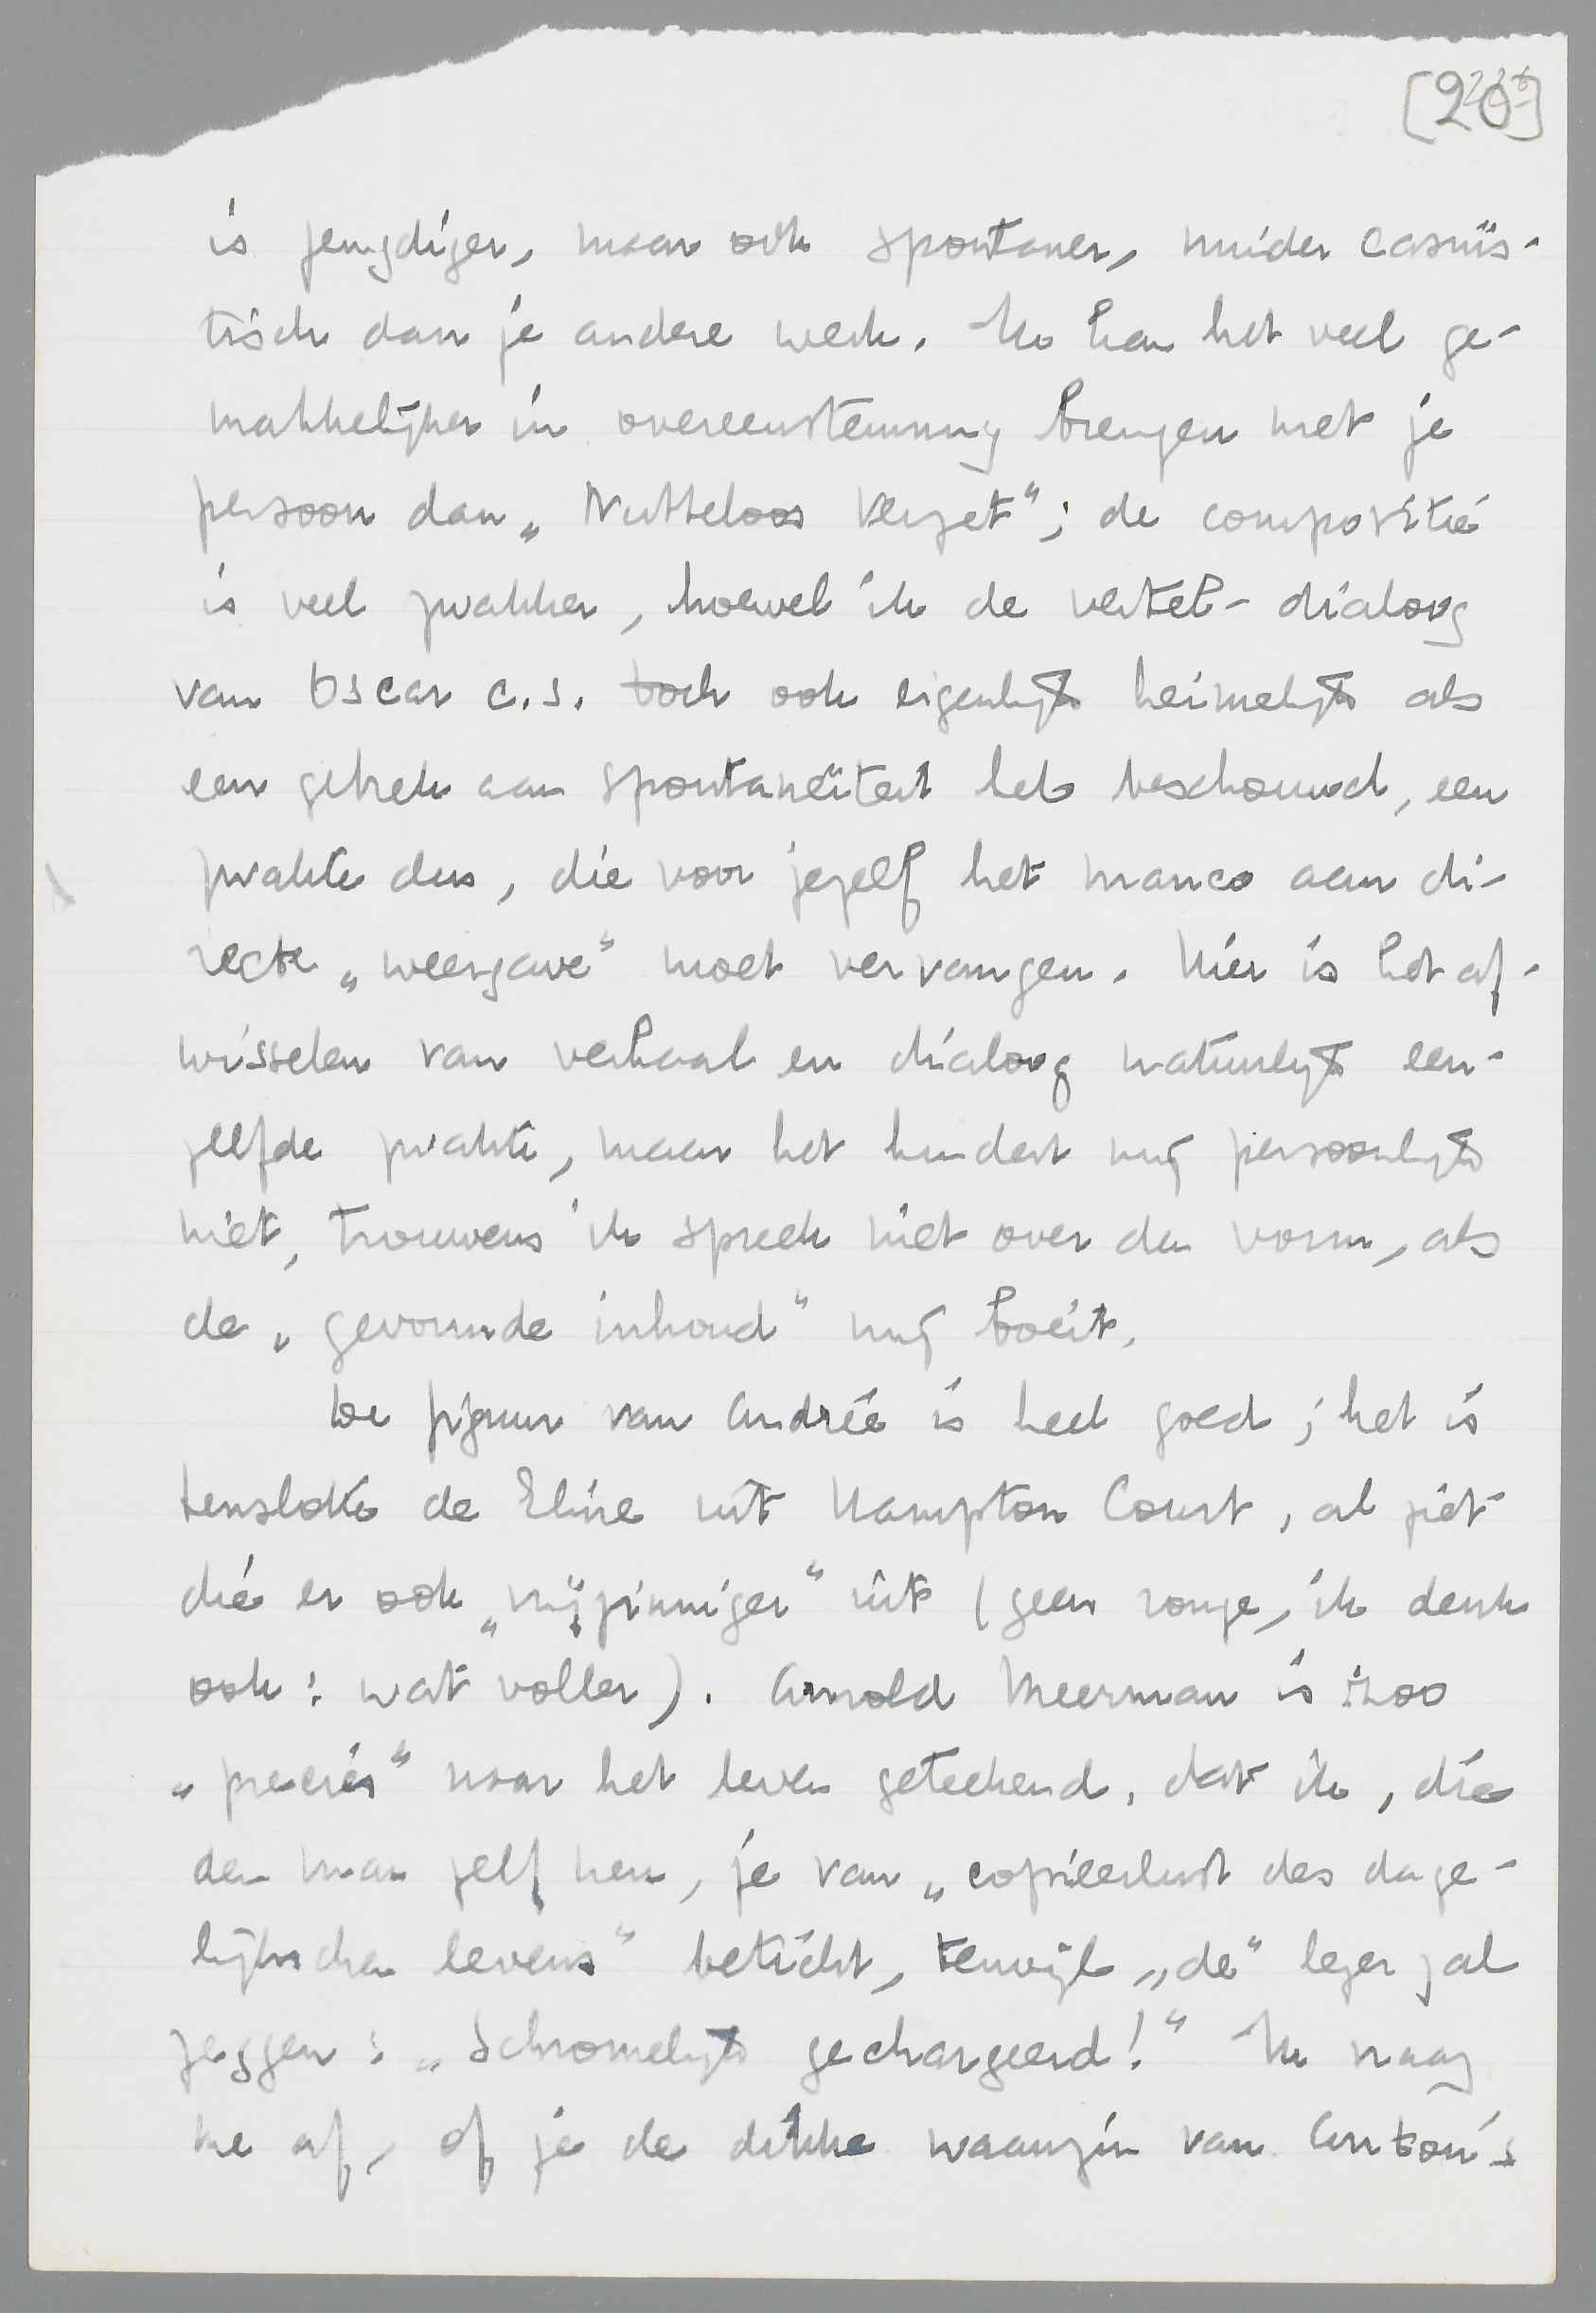 [20]
is jeugdiger, maar ook spontaner, minder casuïs-
tisch dan je andere werk. Ik kan het veel ge-
makkelijker in overeenstemming brengen met je
persoon dan „Nutteloos Verzet"; de compositie
is veel zwakker, hoewel ik de vertel-dialoog
van Oscar c.s. toch ook eigenlijk heimelijk als
een gebrek aan spontaneïteit heb beschouwd, een
zwakte dus, die voor jezelf het manco aan di-
recte „weergave" moet vervangen. Hier is het af-
wisselen van verhaal en dialoog natuurlijk een-
zelfde zwakte, maar het hindert mij persoonlijk
niet, trouwens ik spreek niet over den vorm, als
de „gevormde inhoud" mij boeit.
De figuur van Andrée is heel goed; het is
tenslotte de Eline uit Hampton Court, al ziet
die er ook „vrijzinniger" uit (geen rouge, ik denk
ook: wat voller). Arnold Meerman is zoo
„precies" naar het leven geteekend, dat ik, die
den man zelf ken, je van „copieerlust des dage-
lijkschen levens" beticht, terwijl „de" lezer zal
zeggen: „Schromelijk gechargeerd!" Ik vraag
me af, of je de dikke waanzin van Anton's